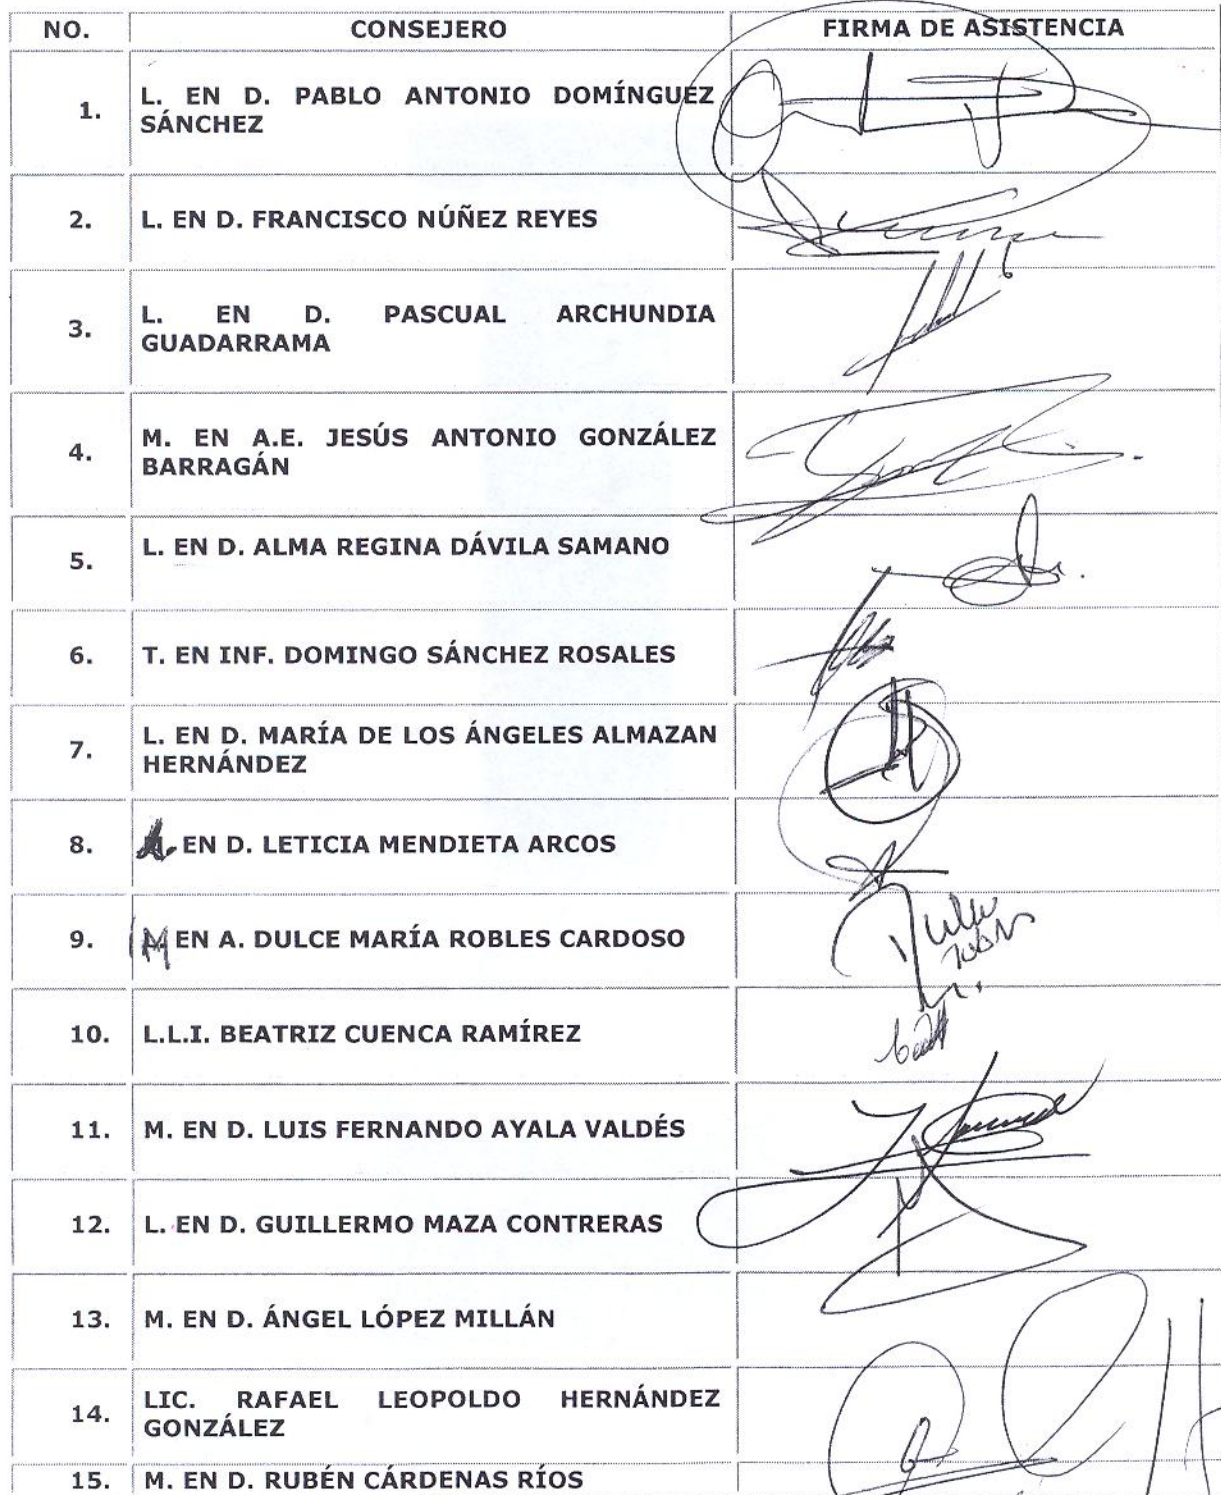 NO. CONSEJERO FIRMA DE ASISTENCIA
1. L. EN D. PABLO ANTONIO DOMÍNGUEZ
SÁNCHEZ
2. L. EN D. FRANCISCO NÚÑEZ REYES
3. L. EN D. PASCUAL ARCHUNDIA
GUADARRAMA
4. M. EN A.E. JESÚS ANTONIO GONZÁLEZ
BARRAGÁN
5. L. EN D. ALMA REGINA DÁVILA SAMANO
6. T. EN INF. DOMINGO SÁNCHEZ ROSALES
7. L. EN D. MARÍA DE LOS ÁNGELES ALMAZAN
HERNÁNDEZ
8. EN D. LETICIA MENDIETA ARCOS
9. M EN A. DULCE MARÍA ROBLES CARDOSO
10. L.L.I. BEATRIZ CUENCA RAMÍREZ
11. M. EN D. LUIS FERNANDO AYALA VALDÉS
12. L. EN D. GUILLERMO MAZA CONTRERAS
13. M. EN D. ÁNGEL LÓPEZ MILLÁN
14. LIC. RAFAEL LEOPOLDO HERNÁNDEZ
GONZÁLEZ
15. M. EN D. RUBÉN CÁRDENAS RÍOS